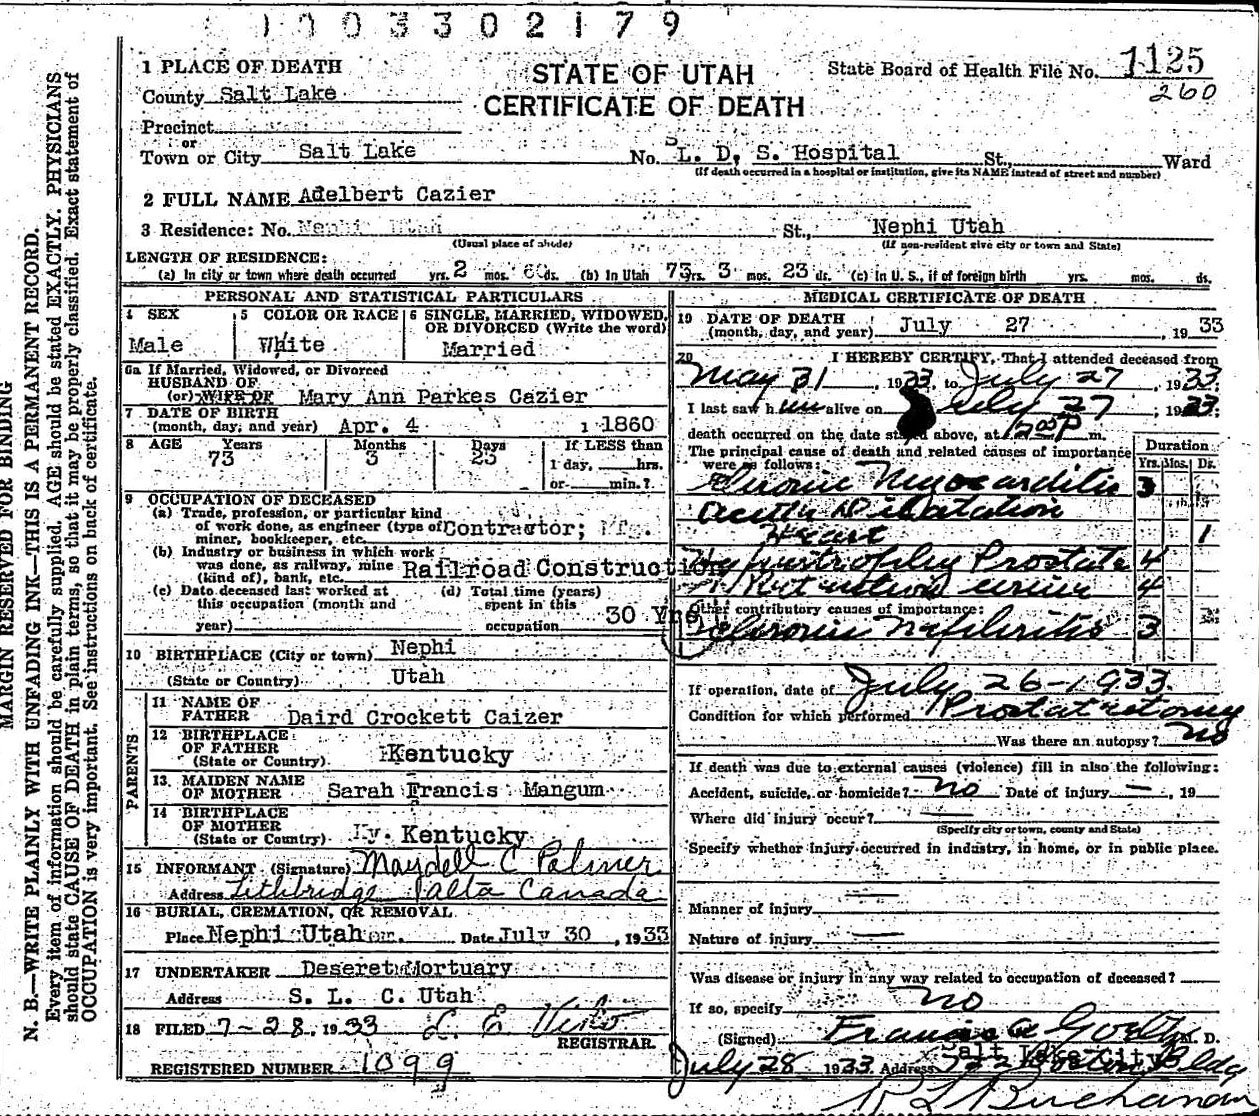 1 0 0 3 3 0 2 1 7 9
MARGIN RESERVED FOR BINDING
N. B.—WRITE PLAINLY WITH UNFADING INK—THIS IS A PERMANENT RECORD.
Every item of information should be carefully supplied. AGE should be stated EXACTLY. PHYSICIANS
should state CAUSE OF DEATH in plain terms, so that it may be properly classified. Exact statement of
OCCUPATION is very important. See instructions on back of certificate.
STATE OF UTAH
CERTIFICATE OF DEATH
State Board of Health File No. 1125
260
1 PLACE OF DEATH
County Salt Lake
Precinct
or
Town or City Salt Lake No. L. D. S. Hospital St., Ward
(If death occurred in a hospital or institution, give its NAME instead of street and number)
2 FULL NAME Adelbert Cazier
3 Residence: No. Nephi Utah St., Nephi Utah
(Usual place of abode) (If non-resident give city or town and State)
LENGTH OF RESIDENCE:
(a) In city or town where death occurred yrs. 2 mos. ds. (b) In Utah 73 yrs. 3 mos. 23 ds. (c) In U. S., if of foreign birth yrs. mos. ds.
PERSONAL AND STATISTICAL PARTICULARS
4 SEX
Male
5 COLOR OR RACE
White
6 SINGLE, MARRIED, WIDOWED, OR DIVORCED (Write the word)
Married
6a If Married, Widowed, or Divorced
HUSBAND OF
(or) WIFE OF Mary Ann Parkes Cazier
7 DATE OF BIRTH
(month, day, and year) Apr. 4 1 1860
8 AGE Years Months Days If LESS than
73 3 23 1 day, hrs.
or min.?
9 OCCUPATION OF DECEASED
(a) Trade, profession, or particular kind
of work done, as engineer (type of) Contractor;
miner, bookkeeper, etc.
(b) Industry or business in which work
was done, as railway, mine Railroad Construction
(kind of), bank, etc.
(c) Date deceased last worked at
this occupation (month and
year)
(d) Total time (years)
spent in this
occupation 30 Yrs
10 BIRTHPLACE (City or town) Nephi
(State or Country) Utah
PARENTS
11 NAME OF
FATHER Daird Crockett Caizer
12 BIRTHPLACE
OF FATHER
(State or Country) Kentucky
13 MAIDEN NAME
OF MOTHER Sarah Francis Mangum
14 BIRTHPLACE
OF MOTHER
(State or Country) Ky. Kentucky
15 INFORMANT (Signature) Maydell C Palmer
Address Lithbridge Palta Canada
16 BURIAL, CREMATION, OR REMOVAL
Place Nephi Utah Date July 30, 1933
17 UNDERTAKER Deseret Mortuary
Address S. L. C. Utah
18 FILED 7-28, 1933
REGISTRAR.
REGISTERED NUMBER 1099
MEDICAL CERTIFICATE OF DEATH
19 DATE OF DEATH
(month, day, and year) July 27, 1933
20 I HEREBY CERTIFY, That I attended deceased from
May 31, 1933, to July 27, 1933
I last saw him alive on July 27, 1933
death occurred on the date stated above, at m.
The principal cause of death and related causes of importance
were as follows:
Duration
Yrs. Mos. Ds.
Chronic Myocarditis 3
Acute Dilatation
Heart 1
Hypertrophy Prostate 4
Retention urine 4
Other contributory causes of importance:
Chronic Nephritis 3
If operation, date of July 26-1933
Condition for which performed Prostatectomy
Was there an autopsy? no
If death was due to external causes (violence) fill in also the following:
Accident, suicide, or homicide? no Date of injury —, 19
Where did injury occur?
(Specify city or town, county and State)
Specify whether injury occurred in industry, in home, or in public place.
Manner of injury
Nature of injury
Was disease or injury in any way related to occupation of deceased?
If so, specify no
(Signed) Francis A Goeltz M. D.
Salt Lake City
July 28 1933 Address 722 Boston Bldg
R L Buchanan